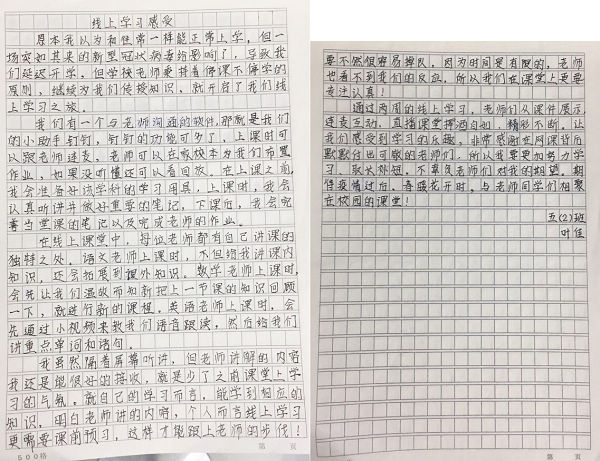 线上学习感受
原本我以为和往常一样能正常上学，但一
场突如其来的新型冠状病毒给影响了，导致我
们延迟开学，但学校老师秉着停课不停学的
原则，继续为我们传授知识，就开启了我们线
上学习之旅。
我们有一个与老师沟通的软件，那就是我们
的小助手钉钉，钉钉的功能可多了，上课时可
以跟老师连麦，老师可以在家校本为我们布置
作业，如果没听懂还可以看回放。在上课之前
我会准备好该学科的学习用具，上课时，我会
认真听讲并做好重要的笔记，下课后，我会完
善当堂课的笔记以及完成老师的作业。
在线上课堂中，每位老师都有自己讲课的
独特之处，语文老师上课时，不但给我讲课内
知识，还会拓展到课外知识。数学老师上课时，
会先让我们温故而知新把上一节课的知识回顾
一下，就进行新的课程。英语老师上课时，会
先通过小视频来教我们语音跟读，然后给我们
讲重点单词和语句。
我虽然隔着屏幕听讲，但老师讲解的内容
我还是能很好的接收，就是少了之前课堂上学
习的气氛。就自己的学习而言，能学到相应的
知识，明白老师讲的内容，个人而言线上学习
更需要课前预习，这样才能跟上老师的步伐！
500格
第 页
要不然很容易掉队，因为时间是有限的，老师
也看不到我们的反应，所以我们在课堂上更要
专注认真！
通过两周的线上学习，老师们从课件展示，
连麦互动，直播课堂挥洒自如，精彩不断。让
我们感受到学习的乐趣，非常感谢在网课背后
默默付出可敬的老师们，所以我要更加努力学
习，取长补短，不辜负老师们对我的期望。期
待疫情过后，春暖花开时，与老师同学们相聚
在校园的课堂！
五(2)班
叶佳
第 页